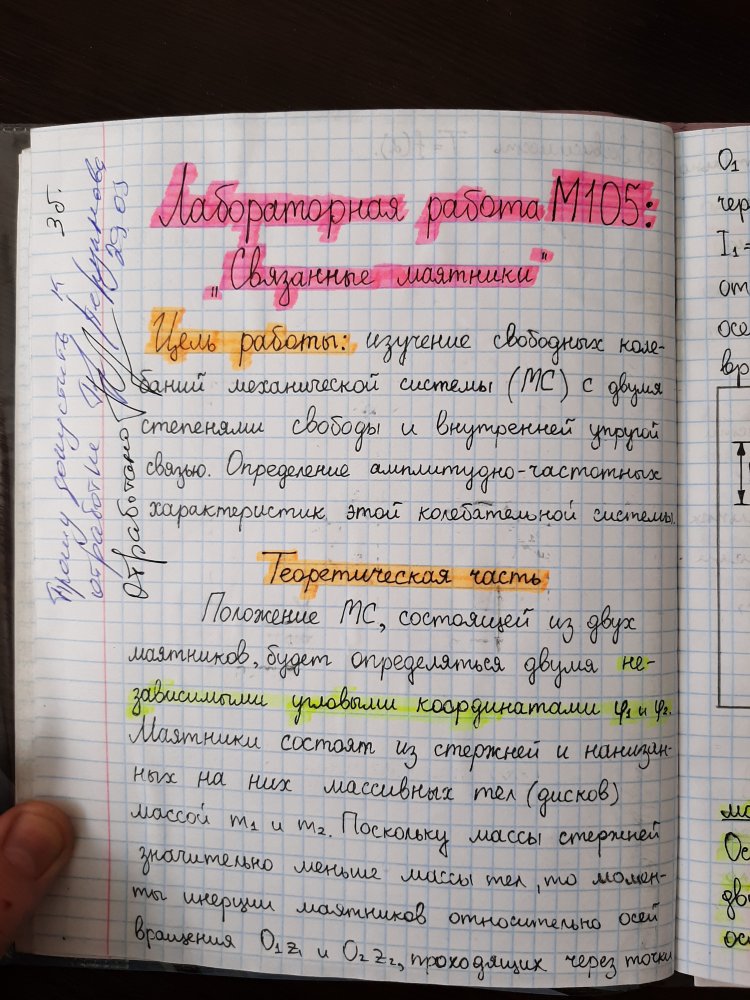 Лабораторная работа М105:
„Связанные маятники"
Цель работы: изучение свободных коле-
баний механической системы (МС) с двумя
степенями свободы и внутренней упругой
связью. Определение амплитудно-частотных
характеристик этой колебательной системы.
Теоретическая часть
Положение МС, состоящей из двух
маятников, будет определяться двумя не-
зависимыми угловыми координатами φ1 и φ2.
Маятники состоят из стержней и нанизан-
ных на них массивных тел (дисков)
массой m1 и m2. Поскольку массы стержней
значительно меньше массы тел, то момен-
ты инерции маятников относительно осей
вращения O1z1 и O2z2, проходящих через точки
Прошу допустить к
отработке
29.09
Отработано
3б.
O1
чер
I1=
от
осе
вр
мо
Ос
дви
ос